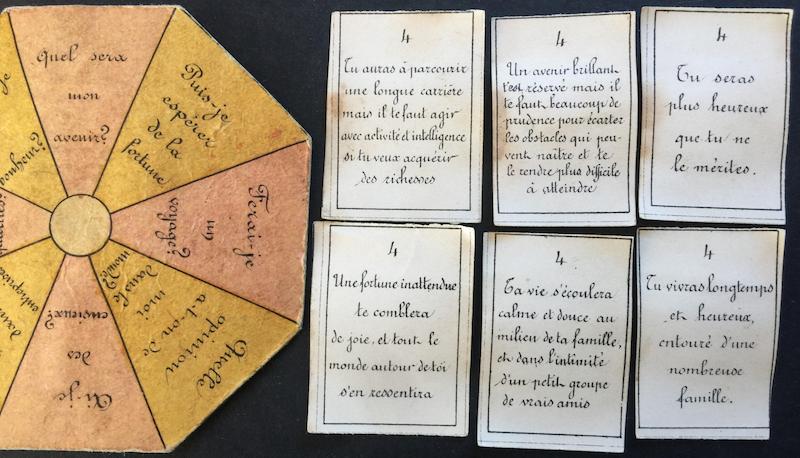 Quel sera
mon
avenir?
Puis-je
espérer
de la
fortune
Ferai-je
un
voyage?
Quelle
opinion
a-t-on de
moi
dans le
monde?
Ai-je
des
envieux?
dans
entreprise
4
Tu auras à parcourir
une longue carrière
mais il te faut agir
avec activité et intelligence
si tu veux acquérir
des richesses
4
Un avenir brillant
t'est réservé mais il
te faut beaucoup de
prudence pour écarter
les obstacles qui peu-
vent naître et te
le rendre plus difficile
à atteindre
4
Tu seras
plus heureux
que tu ne
le mérites.
4
Une fortune inattendue
te comblera
de joie, et tout le
monde autour de toi
s'en ressentira
4
Ta vie s'écoulera
calme et douce au
milieu de ta famille,
et dans l'intimité
d'un petit groupe
de vrais amis
4
Tu vivras longtemps
et heureux,
entouré d'une
nombreuse
famille.